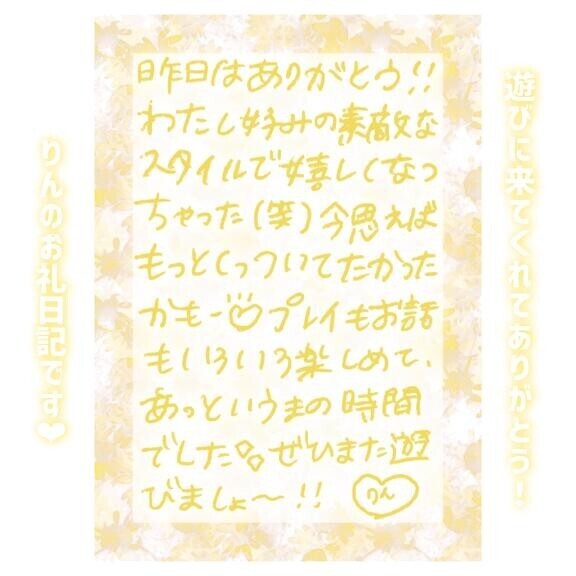 遊びに来てくれてありがとう!
昨日はありがとう!!
わたし好みの素敵な
スタイルで嬉しくなっ
ちゃった(笑)今思えば
もっとくっついてたかった
かもー♡プレイもお話
もいろいろ楽しめて、
あっというまの時間
でした。ぜひまた遊
びましょ〜!!
りん
りんのお礼日記です❤